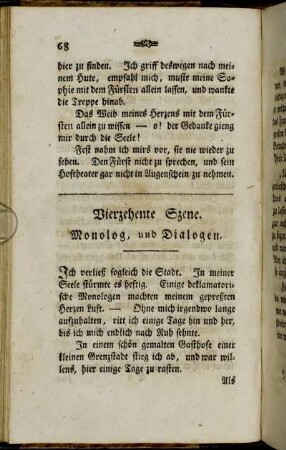 68
hier zu finden. Ich griff deswegen nach mei-
nem Hute, empfahl mich, muste meine So-
phie mit dem Fürsten allein lassen, und wankte
die Treppe hinab.
Das Weib meines Herzens mit dem Für-
sten allein zu wissen — o! der Gedanke gieng
mir durch die Seele!
Fest nahm ich mirs vor, sie nie wieder zu
sehen. Den Fürst nicht zu sprechen, und sein
Hoftheater gar nicht in Augenschein zu nehmen.
Vierzehente Szene.
Monolog, und Dialogen.
Ich verließ sogleich die Stadt. In meiner
Seele stürmte es heftig. Einige deklamatori-
sche Monologen machten meinem gepreßten
Herzen Luft. — Ohne mich irgendwo lange
aufzuhalten, ritt ich einige Tage hin und her,
bis ich mich endlich nach Ruh sehnte.
In einem schön gemalten Gasthofe einer
kleinen Grenzstadt stieg ich ab, und war wil-
lens, hier einige Tage zu rasten.
Als